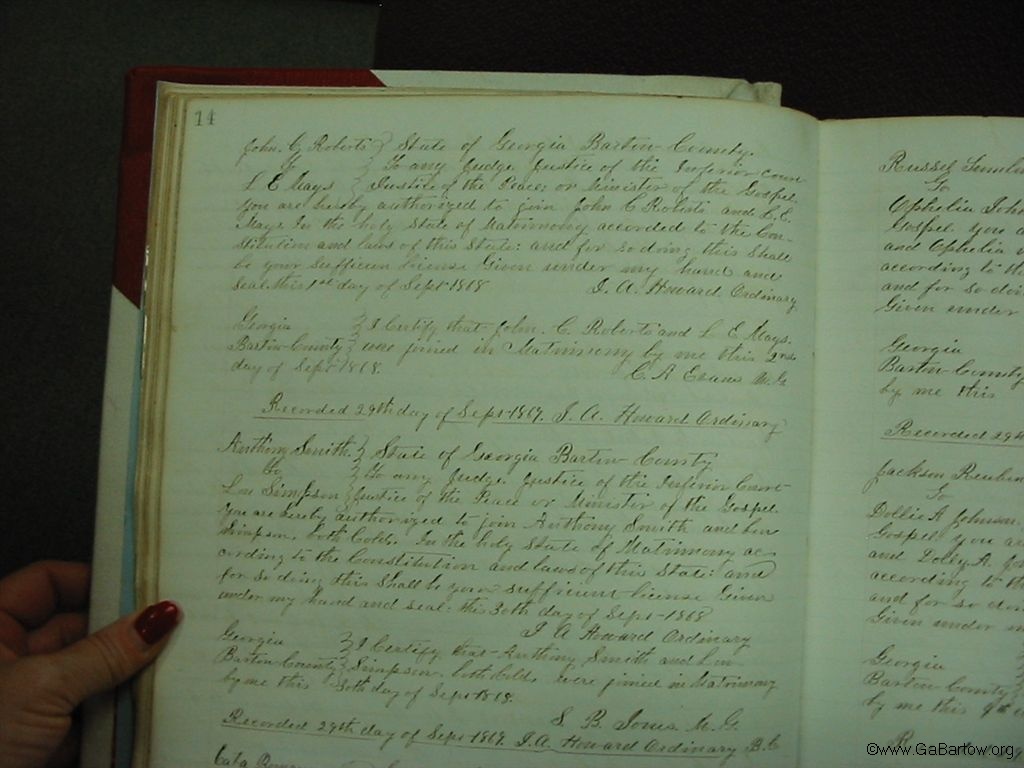 14
John. C. Roberts } State of Georgia Bartow County.
To } To any Judge Justice of the Inferior court
L E Mays } Justice of the Peace; or Minister of the Gospel.
you are hereby authorized to join John C Roberts and L. E.
Mays In the holy State of Matrimony accorded to the Con-
stitution and laws of this State: and for so doing this Shall
be your Sufficien License Given under my hand and
Seal this 1st day of Sept 1868 J. A. Howard Ordinary
Georgia } I Certify that John. C. Roberts and L E Mays.
Bartow County } were joined in Matrimony by me this 2nd
day of Sept 1868. C. A Evans M. G
Recorded 29th day of Sept 1869. J. A. Howard Ordinary
Anthony Smith. } State of Georgia Bartow County
To } To any Judge. Justice of the Inferior Court
Simpson } Justice of the Peace or Minister of the Gospel.
you are hereby authorized to join Anthony Smith and
Simpson, both Cold. In the holy State of Matrimony ac-
cording to the Constitution and laws of this State: and
for so doing this Shall be your sufficient license Given
under my hand and seal: this 30th day of Sept 1868
J A Howard Ordinary
Georgia } I Certify that Anthony Smith and
Bartow County } Simpson. both Cold. were joined in Matrimony
by me this 30th day of Sept 1868.
S. B. Jones M. G.
Recorded 29th day of Sept 1869. J. A. Howard Ordinary B. C
Russel
To
Ophelia
Gospel you
and Ophelia
according to
and for so
Given under
Georgia
Bartow County
by me this
Recorded 29th
Jackson
To
Dollie A Johnson
Gospel you
and Dolly A.
according to
and for so
Given under
Georgia
Bartow County
by me this 9th
©www.GaBartow.org